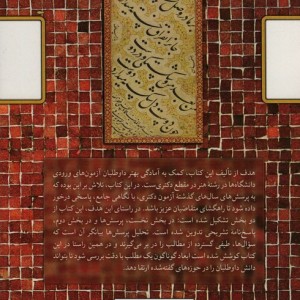 هدف از تألیف این کتاب، کمک به آمادگی بهتر داوطلبان آزمون‌های ورودی
دانشگاه‌ها در رشته هنر در مقطع دکتری‌ست. در این کتاب، تلاش بر این بوده که
به پرسش‌های سال‌های گذشته آزمون دکتری، با نگاهی جامع، پاسخی درخور
داده شود تا راهگشای متقاضیان عزیز باشد. در راستای این هدف، این کتاب از
دو بخش تشکیل شده است: در بخش نخست، پرسش‌ها و در بخش دوم،
پاسخ‌نامه تشریحی تدوین شده است. تحلیل پرسش‌ها بیانگر آن است که
سؤال‌ها، طیفی گسترده از مطالب را در بر می‌گیرند و در همین راستا در این
کتاب کوشش شده است ابعاد گوناگون یک مطلب با دقت بررسی شود تا بتواند
دانش داوطلبان را در حوزه‌های گفته‌شده ارتقا دهد.